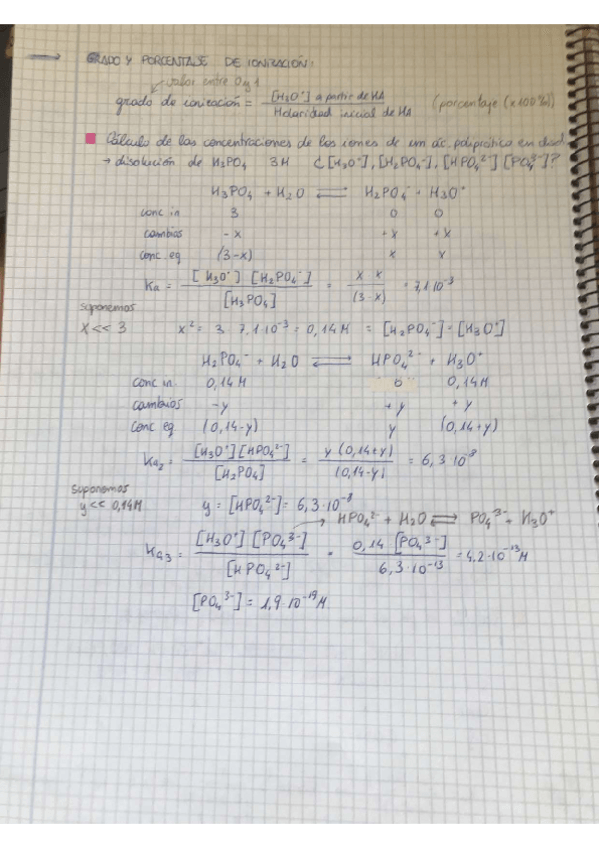 → GRADO Y PORCENTAJE DE IONIZACIÓN:
valor entre 0 y 1
grado de ionización = [H₃O⁺] a partir de HA / Molaridad inicial de HA (porcentaje (x100%))
Cálculo de las concentraciones de los iones de un ác. poliprótico en disol.
→ disolución de H₃PO₄ 3M ¿[H₃O⁺], [H₂PO₄⁻], [HPO₄²⁻] [PO₄³⁻]?
H₃PO₄ + H₂O ⇌ H₂PO₄⁻ + H₃O⁺
conc in 3 0 0
cambios -x +x +x
conc. eq (3-x) x x
Ka = [H₃O⁺] [H₂PO₄⁻] / [H₃PO₄] = x · x / (3-x) = 7,1·10⁻³
suponemos
x << 3 x² = 3 · 7,1·10⁻³ = 0,14 M = [H₂PO₄⁻] = [H₃O⁺]
H₂PO₄⁻ + H₂O ⇌ HPO₄²⁻ + H₃O⁺
conc in. 0,14 M 0 0,14 M
cambios -y +y +y
conc eq (0,14-y) y (0,14+y)
Ka₂ = [H₃O⁺][HPO₄²⁻] / [H₂PO₄] = y (0,14+y) / (0,14-y) = 6,3·10⁻⁸
suponemos
y << 0,14M y = [HPO₄²⁻] = 6,3·10⁻⁸
HPO₄²⁻ + H₂O ⇌ PO₄³⁻ + H₃O⁺
Ka₃ = [H₃O⁺] [PO₄³⁻] / [HPO₄²⁻] = 0,14 [PO₄³⁻] / 6,3·10⁻¹³ = 4,2·10⁻¹³ M
[PO₄³⁻] = 1,9·10⁻¹⁹ M